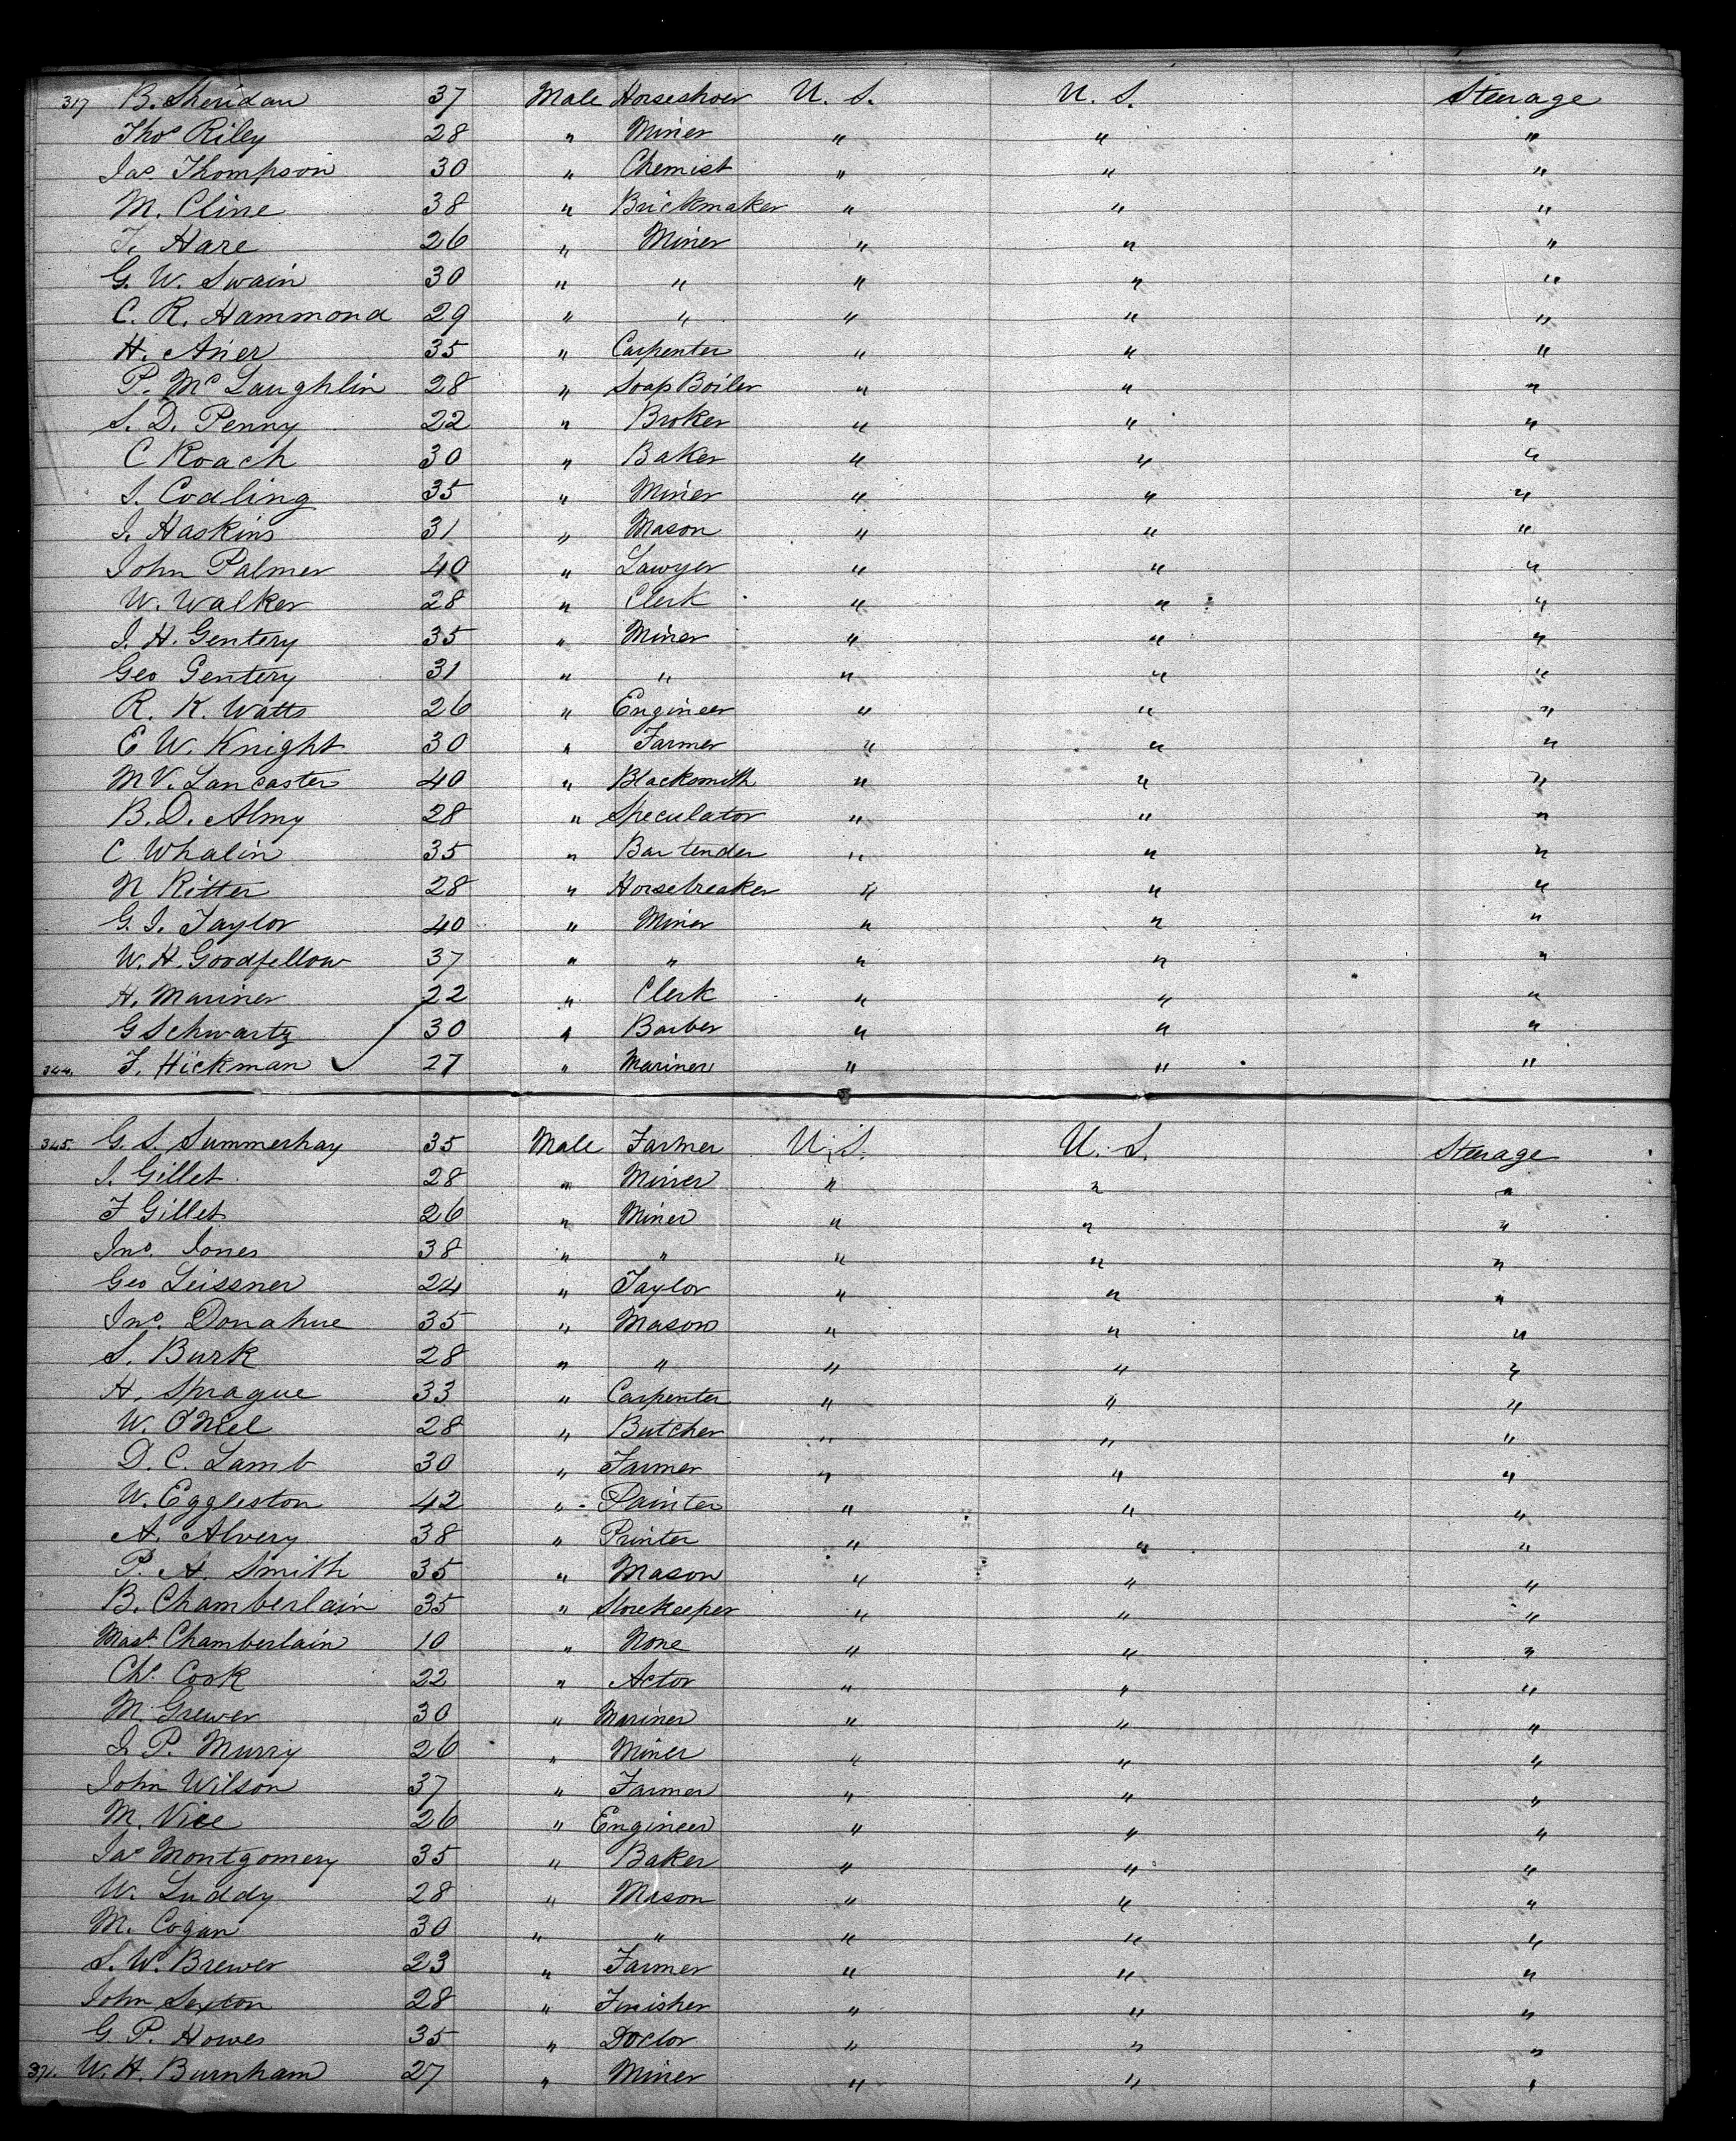 317 B. Sheridan 37 Male Horseshoer U. S. U. S. Steerage
Thos Riley 28 " Miner " " "
Jas Thompson 30 " Chemist " " "
M. Cline 38 " Brickmaker " " "
T. Hare 26 " Miner " " "
G. W. Swain 30 " " " " "
C. R. Hammond 29 " " " " "
H. 35 " Carpenter " " "
P. McLaughlin 28 " Soap Boiler " " "
S. D. Penny 22 " Broker " " "
C Roach 30 " Baker " " "
S. Codling 35 " Miner " " "
J. Haskins 31 " Mason " " "
John Palmer 40 " Lawyer " " "
W. Walker 28 " Clerk " " "
J. H. Gentery 35 " Miner " " "
Geo Gentery 31 " " " " "
R. K. Watts 26 " Engineer " " "
E W. Knight 30 " Farmer " " "
M V. Lancaster 40 " Blacksmith " " "
B. D. Almy 28 " Speculator " " "
C Whalin 35 " Bartender " " "
N Ritter 28 " Horsebreaker " " "
G. J. Taylor 40 " Miner " " "
W. H. Goodfellow 37 " " " " "
H. Mariner 22 " Clerk " " "
G Schwartz 30 " Barber " " "
344. F. Hickman 27 " Mariner " " "
345. G. S. Summerhay 35 Male Farmer U. S. U. S. Steerage
J. Gillet 28 " Miner " " "
F Gillet 26 " Miner " " "
Jno. Jones 38 " " " " "
Geo Leissner 24 " Taylor " " "
Jno. Donahue 35 " Mason " " "
S. Burk 28 " " " " "
H. Sprague 33 " Carpenter " " "
W. O'Niel 28 " Butcher " " "
D. C. Lamb 30 " Farmer " " "
W. Eggleston 42 " Painter " " "
A. Alvery 38 " Printer " " "
P. A. Smith 35 " Mason " " "
B. Chamberlain 35 " Storekeeper " " "
Mast Chamberlain 10 " None " " "
Chs. Cook 22 " Actor " " "
M. Grewer 30 " Mariner " " "
J. P. Murry 26 " Miner " " "
John Wilson 37 " Farmer " " "
M. Vice 26 " Engineer " " "
Jas Montgomery 35 " Baker " " "
W. Luddy 28 " Mason " " "
M. Cogan 30 " " " " "
S. W. Brewer 23 " Farmer " " "
John Sexton 28 " Finisher " " "
G. P. Howes 35 " Doctor " " "
371. W. H. Burnham 27 " Miner " " "